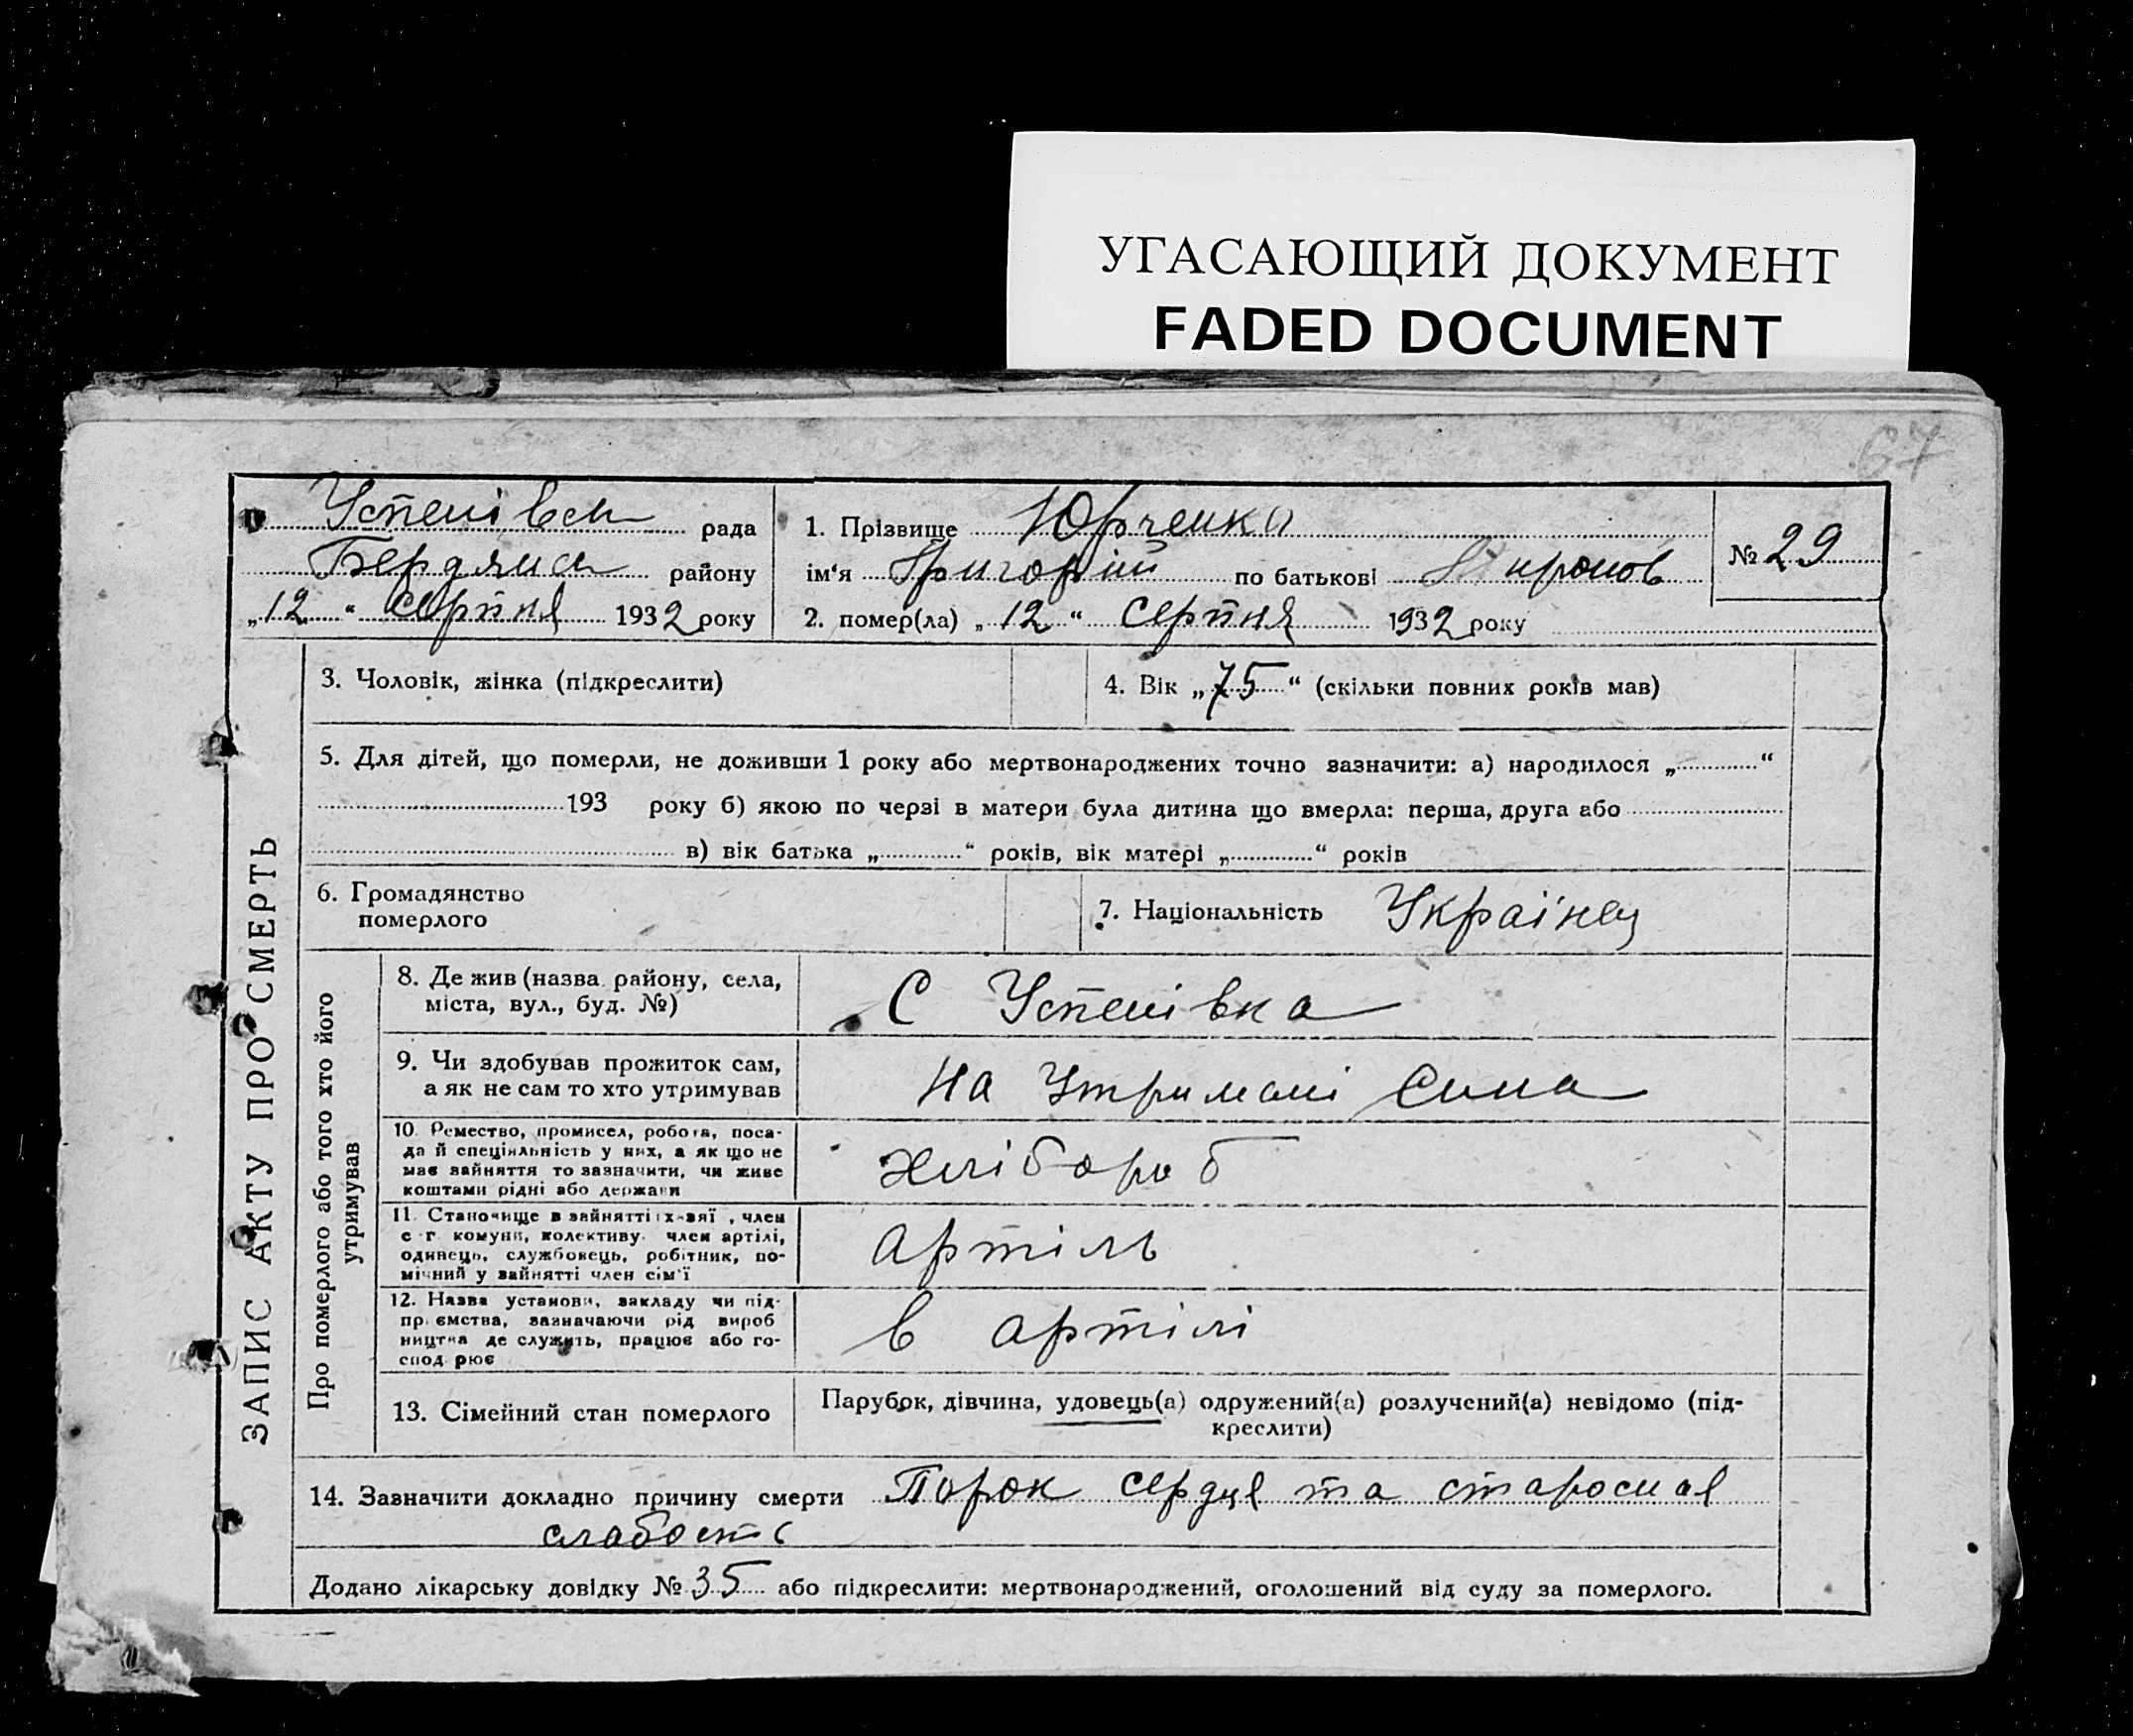 УГАСАЮЩИЙ ДОКУМЕНТ
FADED DOCUMENT
67
Успенівськ рада
Бердянськ району
„12“ серпня 1932 року
1. Прізвище Юрченко
ім‘я Григорій по батькові Миронов
№ 29
2. помер(ла) „12“ серпня 1932 року
ЗАПИС АКТУ ПРО СМЕРТЬ
3. Чоловік, жінка (підкреслити)
4. Вік „75“ (скільки повних років мав)
5. Для дітей, що померли, не доживши 1 року або мертвонароджених точно зазначити: а) народилося „ “
193 року б) якою по черзі в матери була дитина що вмерла: перша, друга або
в) вік батька „ “ років, вік матері „ “ років
6. Громадянство
померлого
7. Національність Українец
Про померлого або того хто його
утримував
8. Де жив (назва району, села,
міста, вул., буд. №)
С Успенівка
9. Чи здобував прожиток сам,
а як не сам то хто утримував
на утримані сина
10. Ремество, промисел, робота, поса-
да й спеціяльність у них, а як що не
має зайняття то зазначити, чи живе
коштами рідні або держави
хлібороб
11. Становище в зайнятті: х-зяї , член
с-г комуни, колективу член артілі,
одинець, службовець, робітник, по-
мічний у зайнятті член сім'ї
артіль
12. Назва установи, закладу чи під-
пр ємства, зазначаючи рід вироб
ництва де служить, працює або го-
спод рює
в артілі
13. Сімейний стан померлого
Парубок, дівчина, удовець(а) одружений(а) розлучений(а) невідомо (під-
креслити)
14. Зазначити докладно причину смерти Порок сердця та старосная
слабость
Додано лікарську довідку № 35 або підкреслити: мертвонароджений, оголошений від суду за померлого.